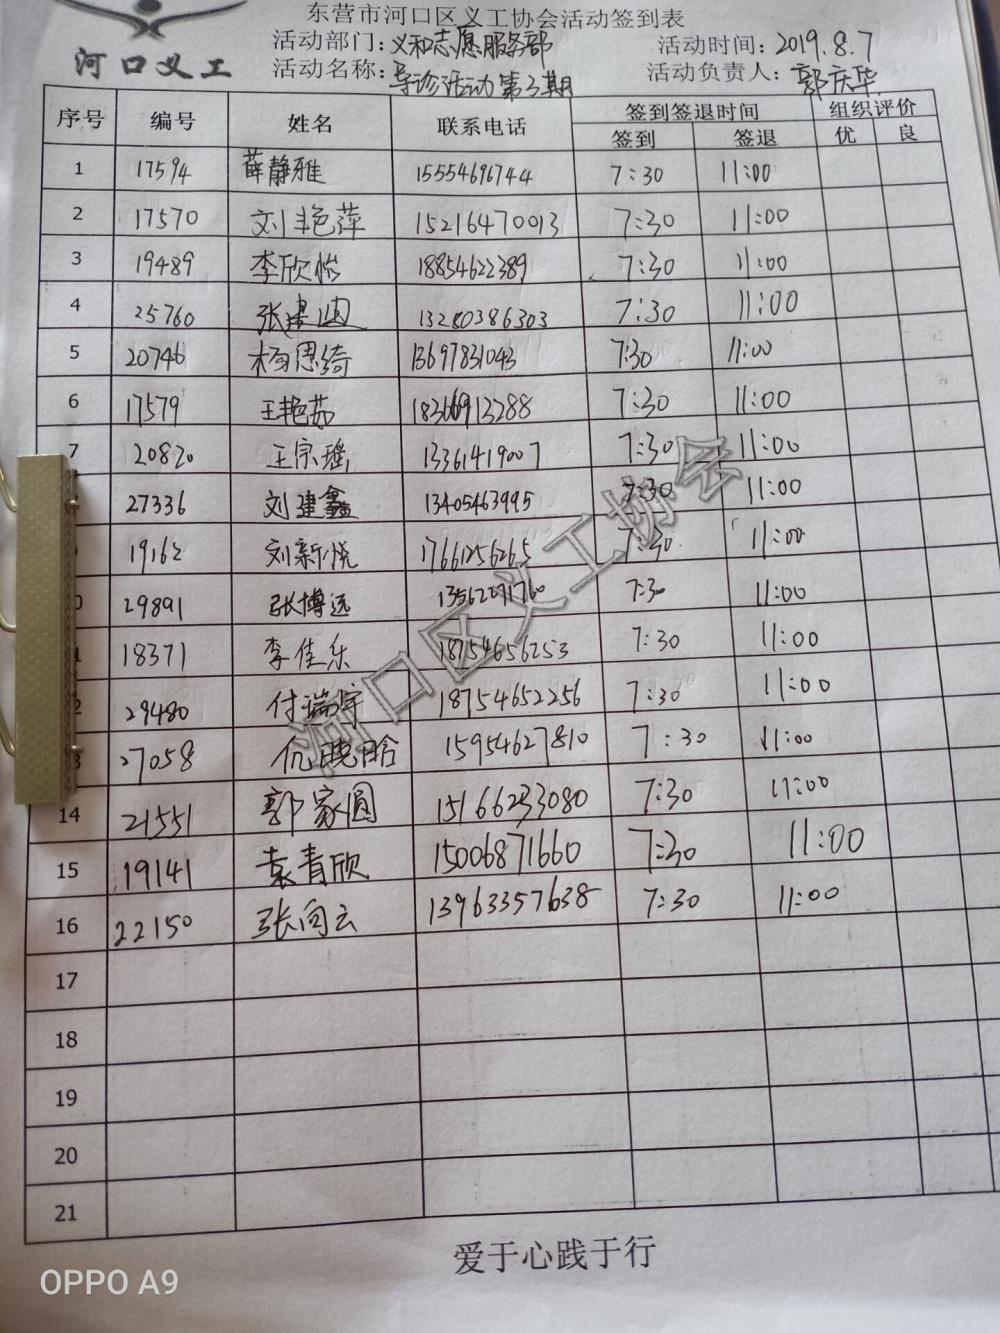 东营市河口区义工协会活动签到表
河口义工
活动部门：义和志愿服务部 活动时间：2019.8.7
活动名称：导诊活动第3期 活动负责人：郭庆华
序号 编号 姓名 联系电话 签到签退时间 组织评价
签到 签退 优 良
1 17594 薛静雅 15554696744 7:30 11:00
2 17570 刘艳萍 15216470013 7:30 11:00
3 19489 李欣怡 18854622389 7:30 11:00
4 25760 张建 13280386303 7:30 11:00
5 20746 杨思绮 13697831043 7:30 11:00
6 17579 王艳茹 18366913288 7:30 11:00
7 20820 王宗瑶 13361419007 7:30 11:00
27336 刘建鑫 13405463995 7:30 11:00
19162 刘新悦 17661256265 7:30 11:00
0 29891 张博远 13562291760 7:30 11:00
1 18371 李佳乐 18754656253 7:30 11:00
2 29480 付瑞宇 18754652256 7:30 11:00
3 27058 伉晓晗 15954627810 7:30 11:00
14 21551 郭家圆 15166233080 7:30 11:00
15 19141 袁青欣 15006871660 7:30 11:00
16 22150 张向云 13963357638 7:30 11:00
17
18
19
20
21
河口区义工协会
爱于心践于行
OPPO A9